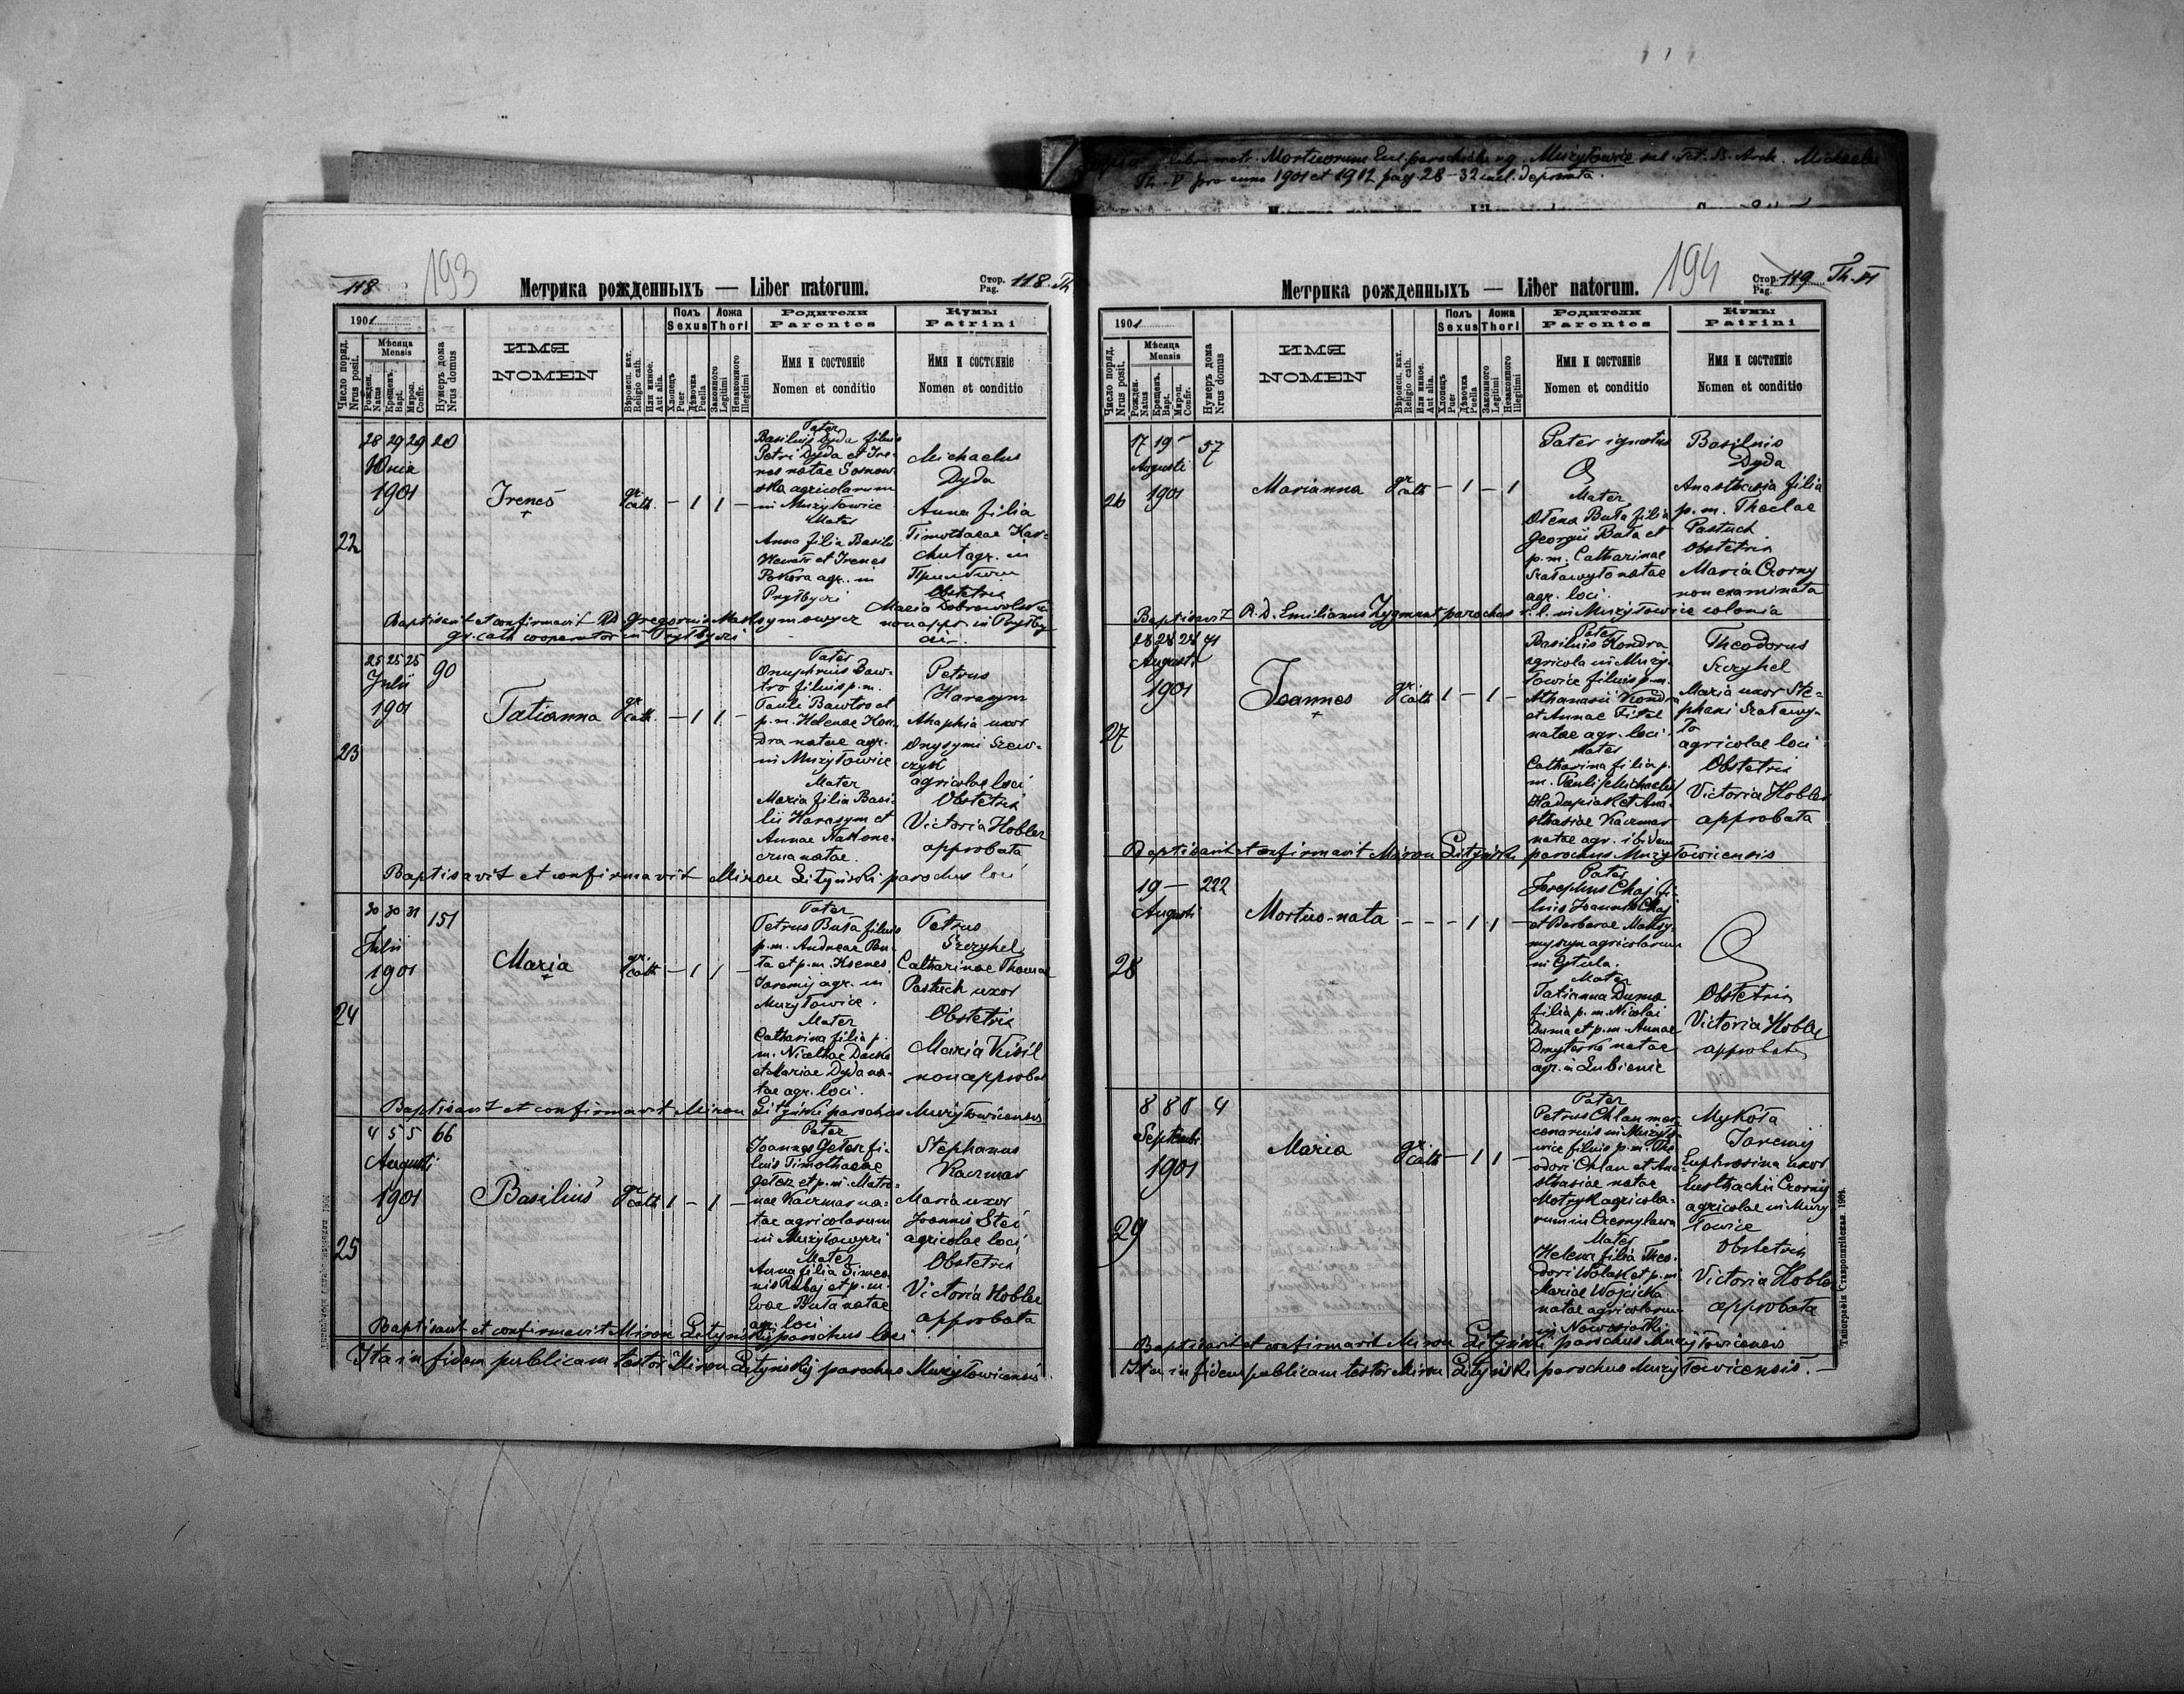 Liber metr. Mortuorum Eccl. parochialis r. g. Mużyłowice sul. Tit. B. Arch. Michaelis
Th. V pro anno 1901 et 1912 pag. 28–32 incl. deprompta.
118 193 Метрика рожденныхъ — Liber natorum. Стор. Pag. 118. Th
1901
Число поряд. Nrus posit.
Мѣсяца Mensis
Рожден. Natus
Крещенъ. Bapt.
Мѵроп. Confir.
Нумеръ дома Nrus domus
ИМЯ
NOMEN
Вѣроисп. кат. Religio cath.
Или иное. Aut alia.
Полъ Sexus
Хлопецъ Puer
Дѣвочка Puella
Ложа Thori
Законного Legitimi
Незаконного Illegitimi
Родители
Parentes
Имя и состояніе
Nomen et conditio
Кумы
Patrini
Имя и состояніе
Nomen et conditio
22
28 29 29 20
1901
Irenes
gr. cath. — 1 1 —
Pater
Basilius Dyda filius
Petri Dyda et Ire-
nes natae Sosnow-
ska agricolarum
in Mużyłowice
Mater
Anna filia Basilii
et Irenes
Pokora agr. in
Przyłbyci
Michaelus
Dyda
Anna filia
Timotheae
agr. in
Obstetrix
Maria Dobrowolska
non appr. in Przyłby-
ci
Baptisavit et confirmavit RD Gregorius Maksymowycz
gr. cath. cooperator in Przyłbyci
23
25 25 25 90
Julii
1901
Tatianna
gr. cath. — 1 1 —
Pater
Onuphrius Baw-
tro filius p. m.
Pauli Bawtro et
p. m. Helenae Kon-
dra natae agr.
in Mużyłowice
Mater
Maria filia Basi-
lii Harasym et
Annae Nakone-
czna natae.
Petrus
Harasym
Ahaphia uxor
Onysymi Szew-
czyk
agricolae loci
Obstetrix
Victoria Hobler
approbata
Baptisavit et confirmavit Miron Lityński parochus loci
24
30 30 31 151
Julii
1901
Maria
gr. cath — 1 1 —
Pater
Petrus Buła filius
p. m. Andreae Bu-
ła et p. m. Ksenes
Jaremij agr. in
Mużyłowice.
Mater
Catharina filia p.
m. Nicethae Dacko
et Mariae Dyda na-
tae agr. loci.
Petrus
Szczyhel
Catharinae Thomae
Pastuch uxor
Obstetrix
Maria Kisil
non approbat
Baptisavit et confirmavit Miron Lityński parochus Mużyłowicensis
25
4 5 5 66
Augusti
1901
Basilius
gr. cath. 1 — 1 —
Pater
Joannes Geler fi-
lius Timotheae
Geler et p. m. Matro-
nae Kaczmar na-
tae agricolarum
in Mużyłowyci
Mater
Anna filia Simeo-
nis Rabaj et p. m.
Evae Buła natae
agr. loci
Stephanus
Kaczmar
Maria uxor
Joannis Steć
agricolae loci
Obstetrix
Victoria Hobler
approbata
Baptisavit et confirmavit Miron Lityński parochus loci
Ita in fidem publicam testor Miron Lityńskij parochus Mużyłowicensis.
194 Метрика рожденныхъ — Liber natorum. Стор. Pag. 119 Th. VI
1901
Число поряд. Nrus posit.
Мѣсяца Mensis
Рожден. Natus
Крещенъ. Bapt.
Мѵроп. Confir.
Нумеръ дома Nrus domus
ИМЯ
NOMEN
Вѣроисп. кат. Religio cath.
Или иное. Aut alia.
Полъ Sexus
Хлопецъ Puer
Дѣвочка Puella
Ложа Thori
Законного Legitimi
Незаконного Illegitimi
Родители
Parentes
Имя и состояніе
Nomen et conditio
Кумы
Patrini
Имя и состояніе
Nomen et conditio
26
17 19 — 57
Augusti
1901
Marianna
gr. cath — 1 — 1
Pater ignotus
Mater
Ołena Buła filia
Georgii Buła et
p. m. Catharinae
Szaławyło natae
agr. loci.
Basilius
Dyda
Anasthasia filia
p. m. Theclae
Pastuch
Obstetrix
Maria Czorny
non examinata
Baptisavit R. d. Emilianus Zygmunt parochus r. l. in Mużyłowice colonia
27
28 28 28 41
Augusti
1901
Joannes
gr. cath 1 — 1 —
Pater
Basilius Kondra
agricola in Muży-
łowice filius p. m.
Athanasii Kondra
et Annae Fitel
natae agr. loci.
Mater
Catharina filia p.
m. Pauli /Michaelis/
et Ana-
sthasiae Kaczmar
natae agr. ibidem
Theodorus
Szczyhel
Maria uxor Ste-
phani Szaławy-
ło
agricolae loci
Obstetrix
Victoria Hobler
approbata
Baptisavit et confirmavit Miron Lityński parochus Mużyłowicensis
28
19 — 222
Augusti
Mortuo-nata
— — — 1 1 —
Pater
Josephus Chaj fi-
lius Joannis Chaj
et Barbarae Maksy-
myszyn agricolarum
in Cetula.
Mater
Tatianna Duma
filia p. m. Nicolai
Duma et p. m. Annae
Dmyterko natae
agr. in Lubienie
Obstetrix
Victoria Hobler
approbata
29
8 8 8 4
Septembr.
1901
Maria
gr. cath — 1 1 —
Pater
Petrus Chlan mer-
cenarius in Mużyło-
wice filius p. m. The-
odori Chlan et Ana-
sthasiae natae
Motryk agricola-
rum in Czernylawa
Mater
Helena filia Theo-
dori Wolak et p. m.
Mariae Wojcicka
natae agricolarum
in Nowosiołki
Mykoła
Jaremij
Euphrosina uxor
Eusthachii Czornij
agricolae in Muży-
łowice
Obstetrix
Victoria Hobler
approbata
Baptisavit et confirmavit Miron Lityński parochus Mużyłowicensis
Ita in fidem publicam testor Miron Lityński parochus Mużyłowicensis. —
Типографія Ставропигійская. 1901.